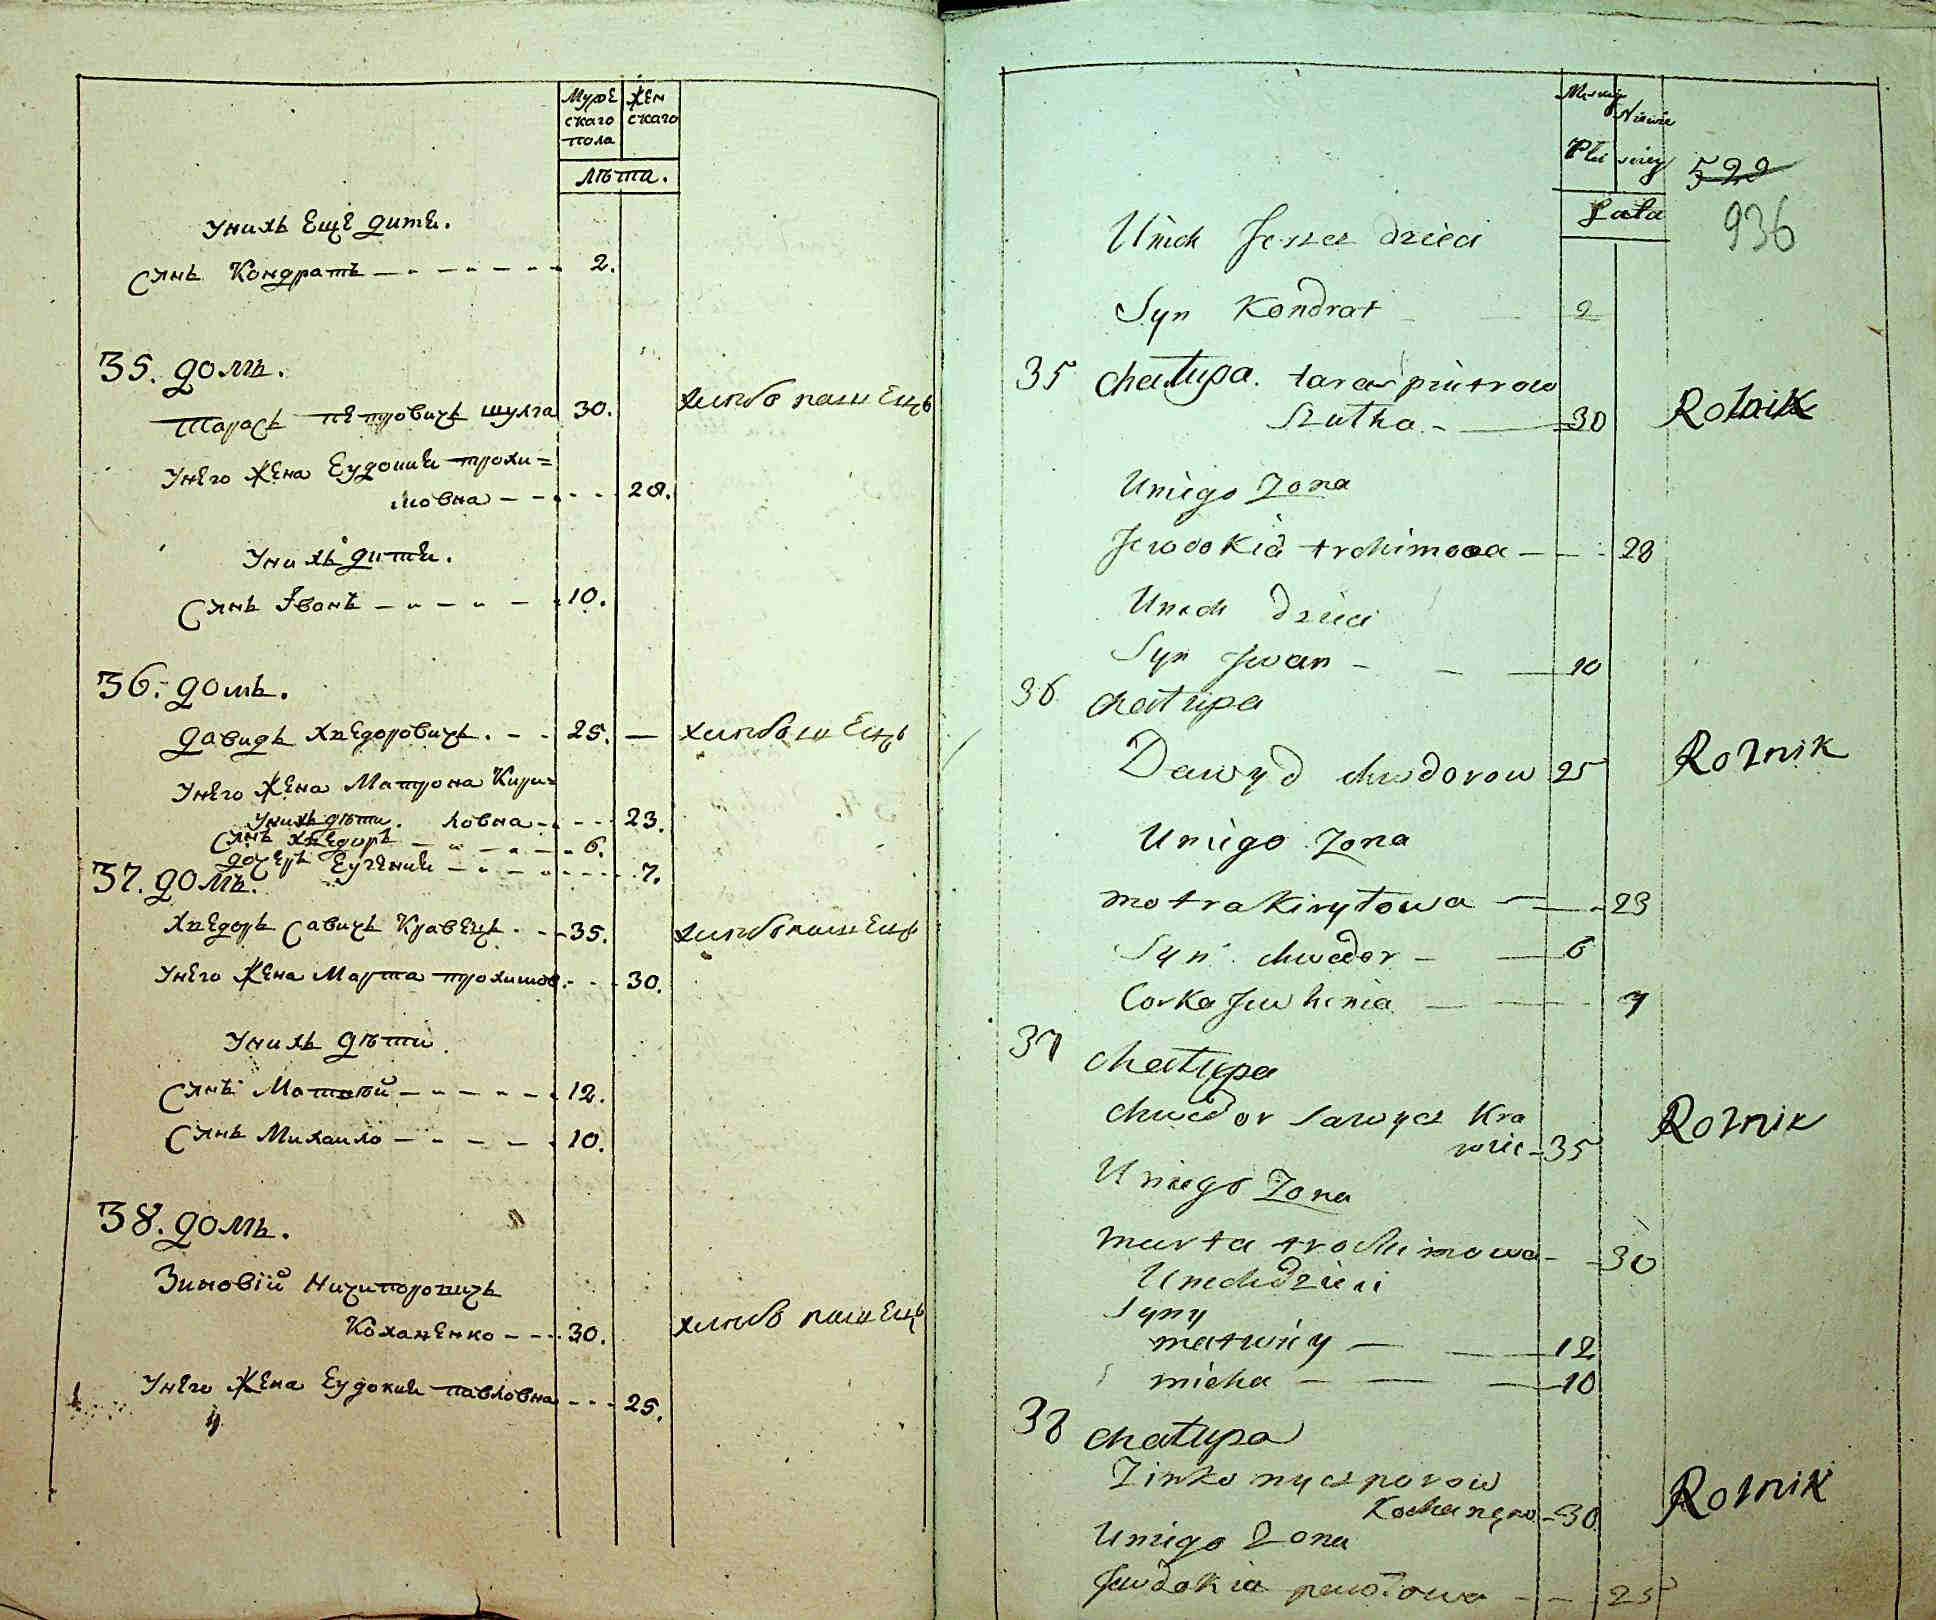 Муже
скаго
пола
Жен
скаго
лѣта.
Унихъ еще дити.
Сынъ Кондратъ 2.
35. домъ.
Тарасъ Петровичъ Шулга 30. хлибопашецъ
Унего жена Еудокия Трохи=
мовна 28.
Унихъ дити.
Сынъ Іванъ 10.
36. домъ.
Давидъ Хведоровичъ. 25. — хлибопашецъ
Унего жена Матрона Кири=
ловна 23.
Унихъ дѣти.
Сынъ Хведоръ 6.
дочеръ Еугения 7.
37. домъ.
Хведоръ Савичъ Кравецъ 35. хлибопашецъ
Унего жена Марта Трохимов. 30.
Унихъ дѣти
Сынъ Матвѣй 12.
Сынъ Михаило 10.
38. домъ.
Зиновій Ничипоровичъ
Коханенко 30. хлибопашецъ
Унего жена Еудокия Павловна 25.
Płci
Lata
522
936
Unich Jeszcz dzieci
Syn Kondrat 2
35 chałupa. taras piutrow
Szulha 30 Rolnik
Uniego Zona
Jewdokia trchimowa 28
Unich dzieci
Syn Jwan 10
36 chałupa
Dawyd chwdorow 25 Rolnik
Uniego Zona
motra Kiryłowa 23
Syn chwedor 6
Corka Jewhenia 7
37 chałupa
chwedor Sawycz Kra
wiec 35 Rolnik
Uniego Zona
marta trochimowa 30
Unich dzieci
Syny
matwiey 12
micha 10
38 chałupa
Zinko nyczporow
Kochanęko 30 Rolnik
Uniego Zona
Jewdokia pawłowa 25